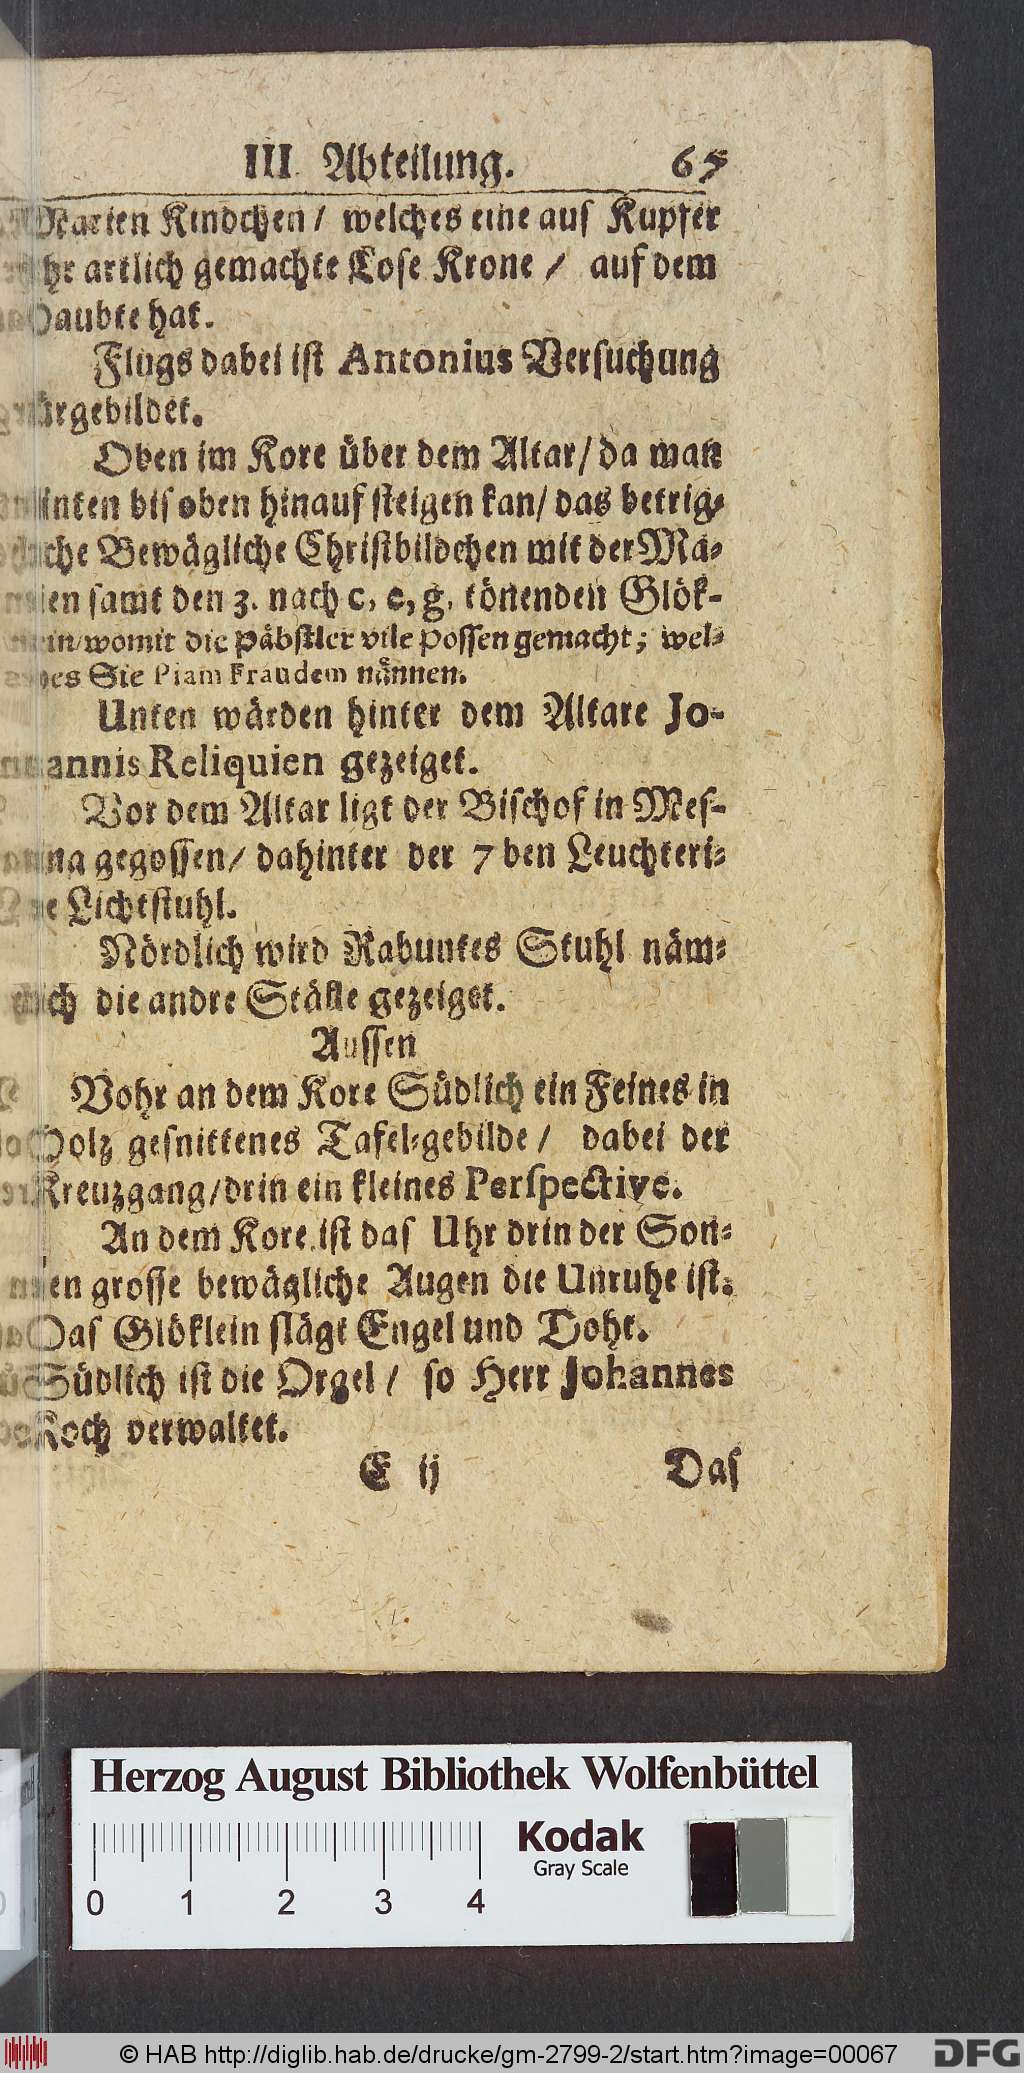 III. Abteilung. 65
Marien Kindchen / welches eine aus Kupfer
artlich gemachte Lose Krone / auf dem
Haubte hat.
Flugs dabei ist Antonius Versuchung
fürgebildet.
Oben im Kore über dem Altar / da man
hinten bis oben hinauf steigen kan / das betrig-
liche Bewägliche Christbildchen mit der Ma-
rien samt den 3. nach c, e, g, tönenden Glök-
lein / womit die Päbstler vile possen gemacht; wel-
ches Sie Piam Fraudem nännen.
Unten wärden hinter dem Altare Jo-
hannis Reliquien gezeiget.
Vor dem Altar ligt der Bischof in Mes-
sing gegossen / dahinter der 7 ben Leuchteri-
ge Lichtstuhl.
Nördlich wird Rabuntes Stuhl näm-
lich die andre Ställe gezeiget.
Aussen
Vohr an dem Kore Südlich ein Feines in
Holz gesnittenes Tafel-gebilde / dabei der
Kreuzgang / drin ein kleines Perspective.
An dem Kore ist das Uhr drin der Son-
nen grosse bewägliche Augen die Unruhe ist.
Das Glöklein slägt Engel und Doht.
Südlich ist die Orgel / so Herr Johannes
Koch verwaltet.
E ij Das
Herzog August Bibliothek Wolfenbüttel
Kodak
Gray Scale
0 1 2 3 4
© HAB http://diglib.hab.de/drucke/gm-2799-2/start.htm?image=00067 DFG